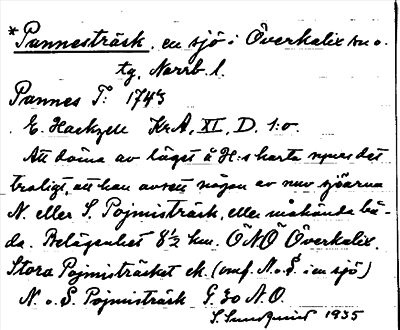 *Pannesträsk, en sjö i Överkalix sn o.
tg. Norrb. l.
Pannes T: 1743
E. Hackzell KrA, XI, D. 1:o.
Att döma av läget å H:s karta synes det
troligt, att han avsett någon av nuv. sjöarna
N. eller S. Pojmisträsk, eller måhända bå-
da. Belägenhet 8½ km. ÖNÖ Överkalix.
Stora Pojmisträsket ek. (omf. N. o. S. i en sjö)
N. o. S. Pojmisträsk G. 30 N.O.
1935